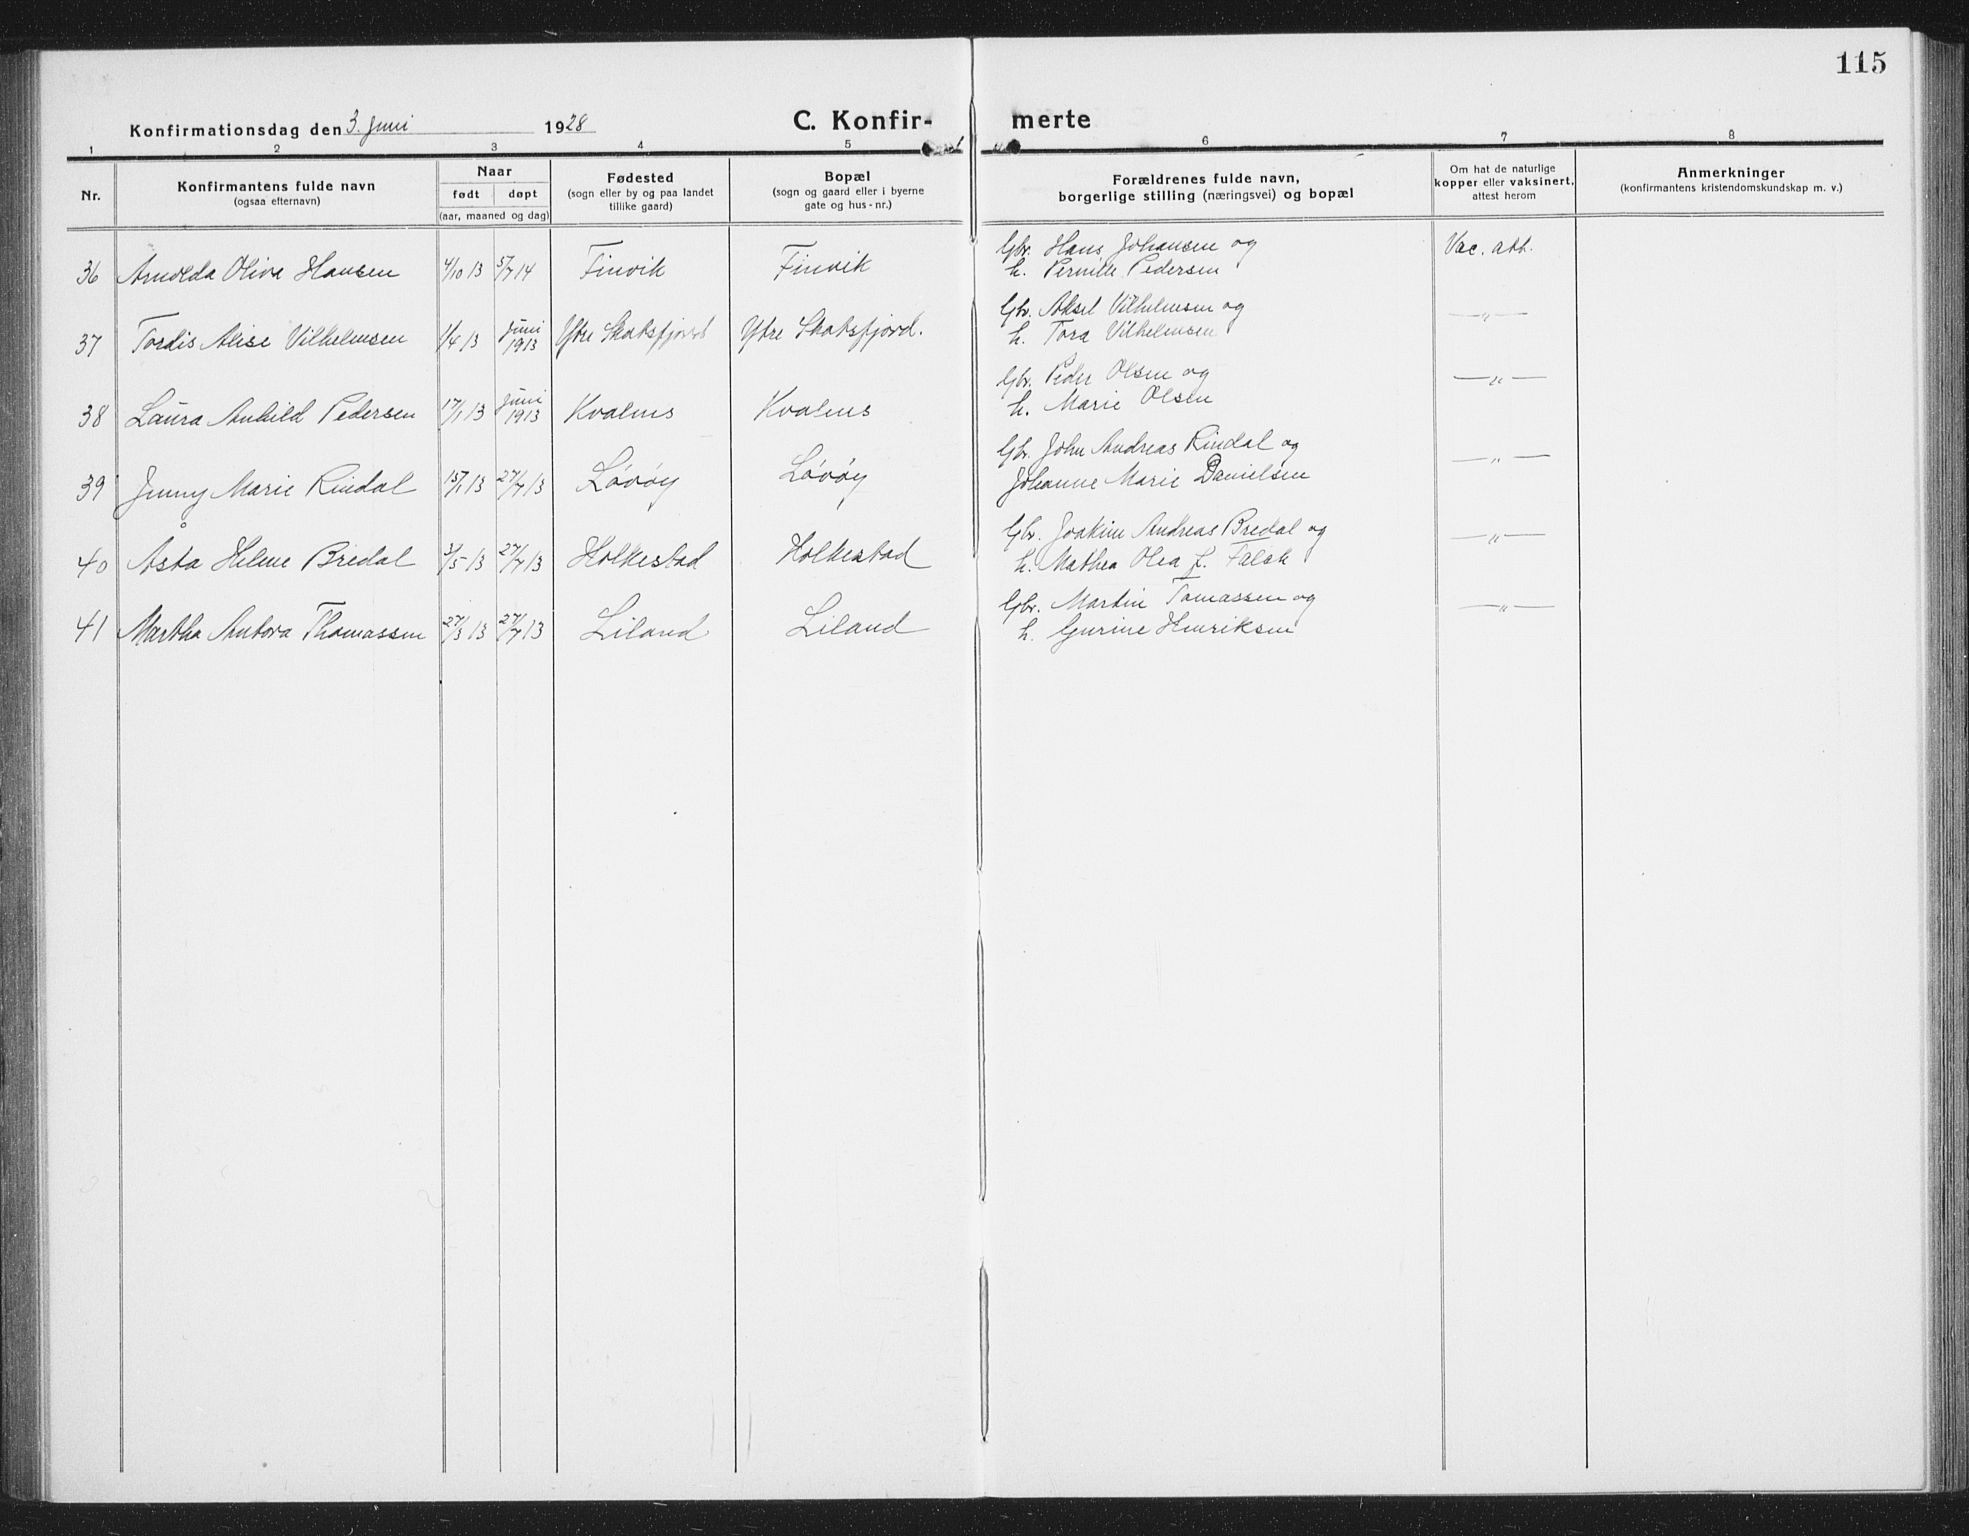 115
Konfirmationsdag den 3. Juni 1928 C. Konfir- merte
1 2 3 4 5 6 7 8
Nr. Konfirmantens fulde navn (ogsaa efternavn) Naar født døpt (aar, maaned og dag) Fødested (sogn eller by og paa landet tillike gaard) Bopæl (sogn og gaard eller i byerne gate og hus-nr.) Forældrenes fulde navn, borgerlige stilling (næringsvei) og bopæl Om hat de naturlige kopper eller vaksinert, attest herom Anmerkninger (konfirmantens kristendomskundskap m. v.)
Gbr. Hans Johansen og Vac. att.
36 Arnolda Oliva Hansen 4/10 13 5/7 14 Finvik Finvik h. Pernille Pedersen
Gbr. Aksel Vilhelmsen og —"—
37 Tordis Alise Vilhelmsen 1/4 13 Juni 1913 Ytre Skatsfjord Ytre Skatsfjord. h. Tora Vilhelmsen
Gbr. Peder Olsen og —"—
38 Laura Anhild Pedersen 17/1 13 Juni 1913 Kvalnes Kvalnes h. Marie Olsen
Gbr. John Andreas Rindal og —"—
39 Jenny Marie Rindal 15/1 13 27/7 13 Løvøy Løvøy Johanne Marie Danielsen
Gbr. Joakim Andreas Bredal og —"—
40 Åsta Helene Bredal 3/5 13 27/7 13 Holkestad Holkestad h. Mathea Olea f. Falck
Gbr. Martin Tomassen og —"—
41 Martha Antora Thomassen 27/3 13 27/7 13 Liland Liland h. Gurine Henriksen